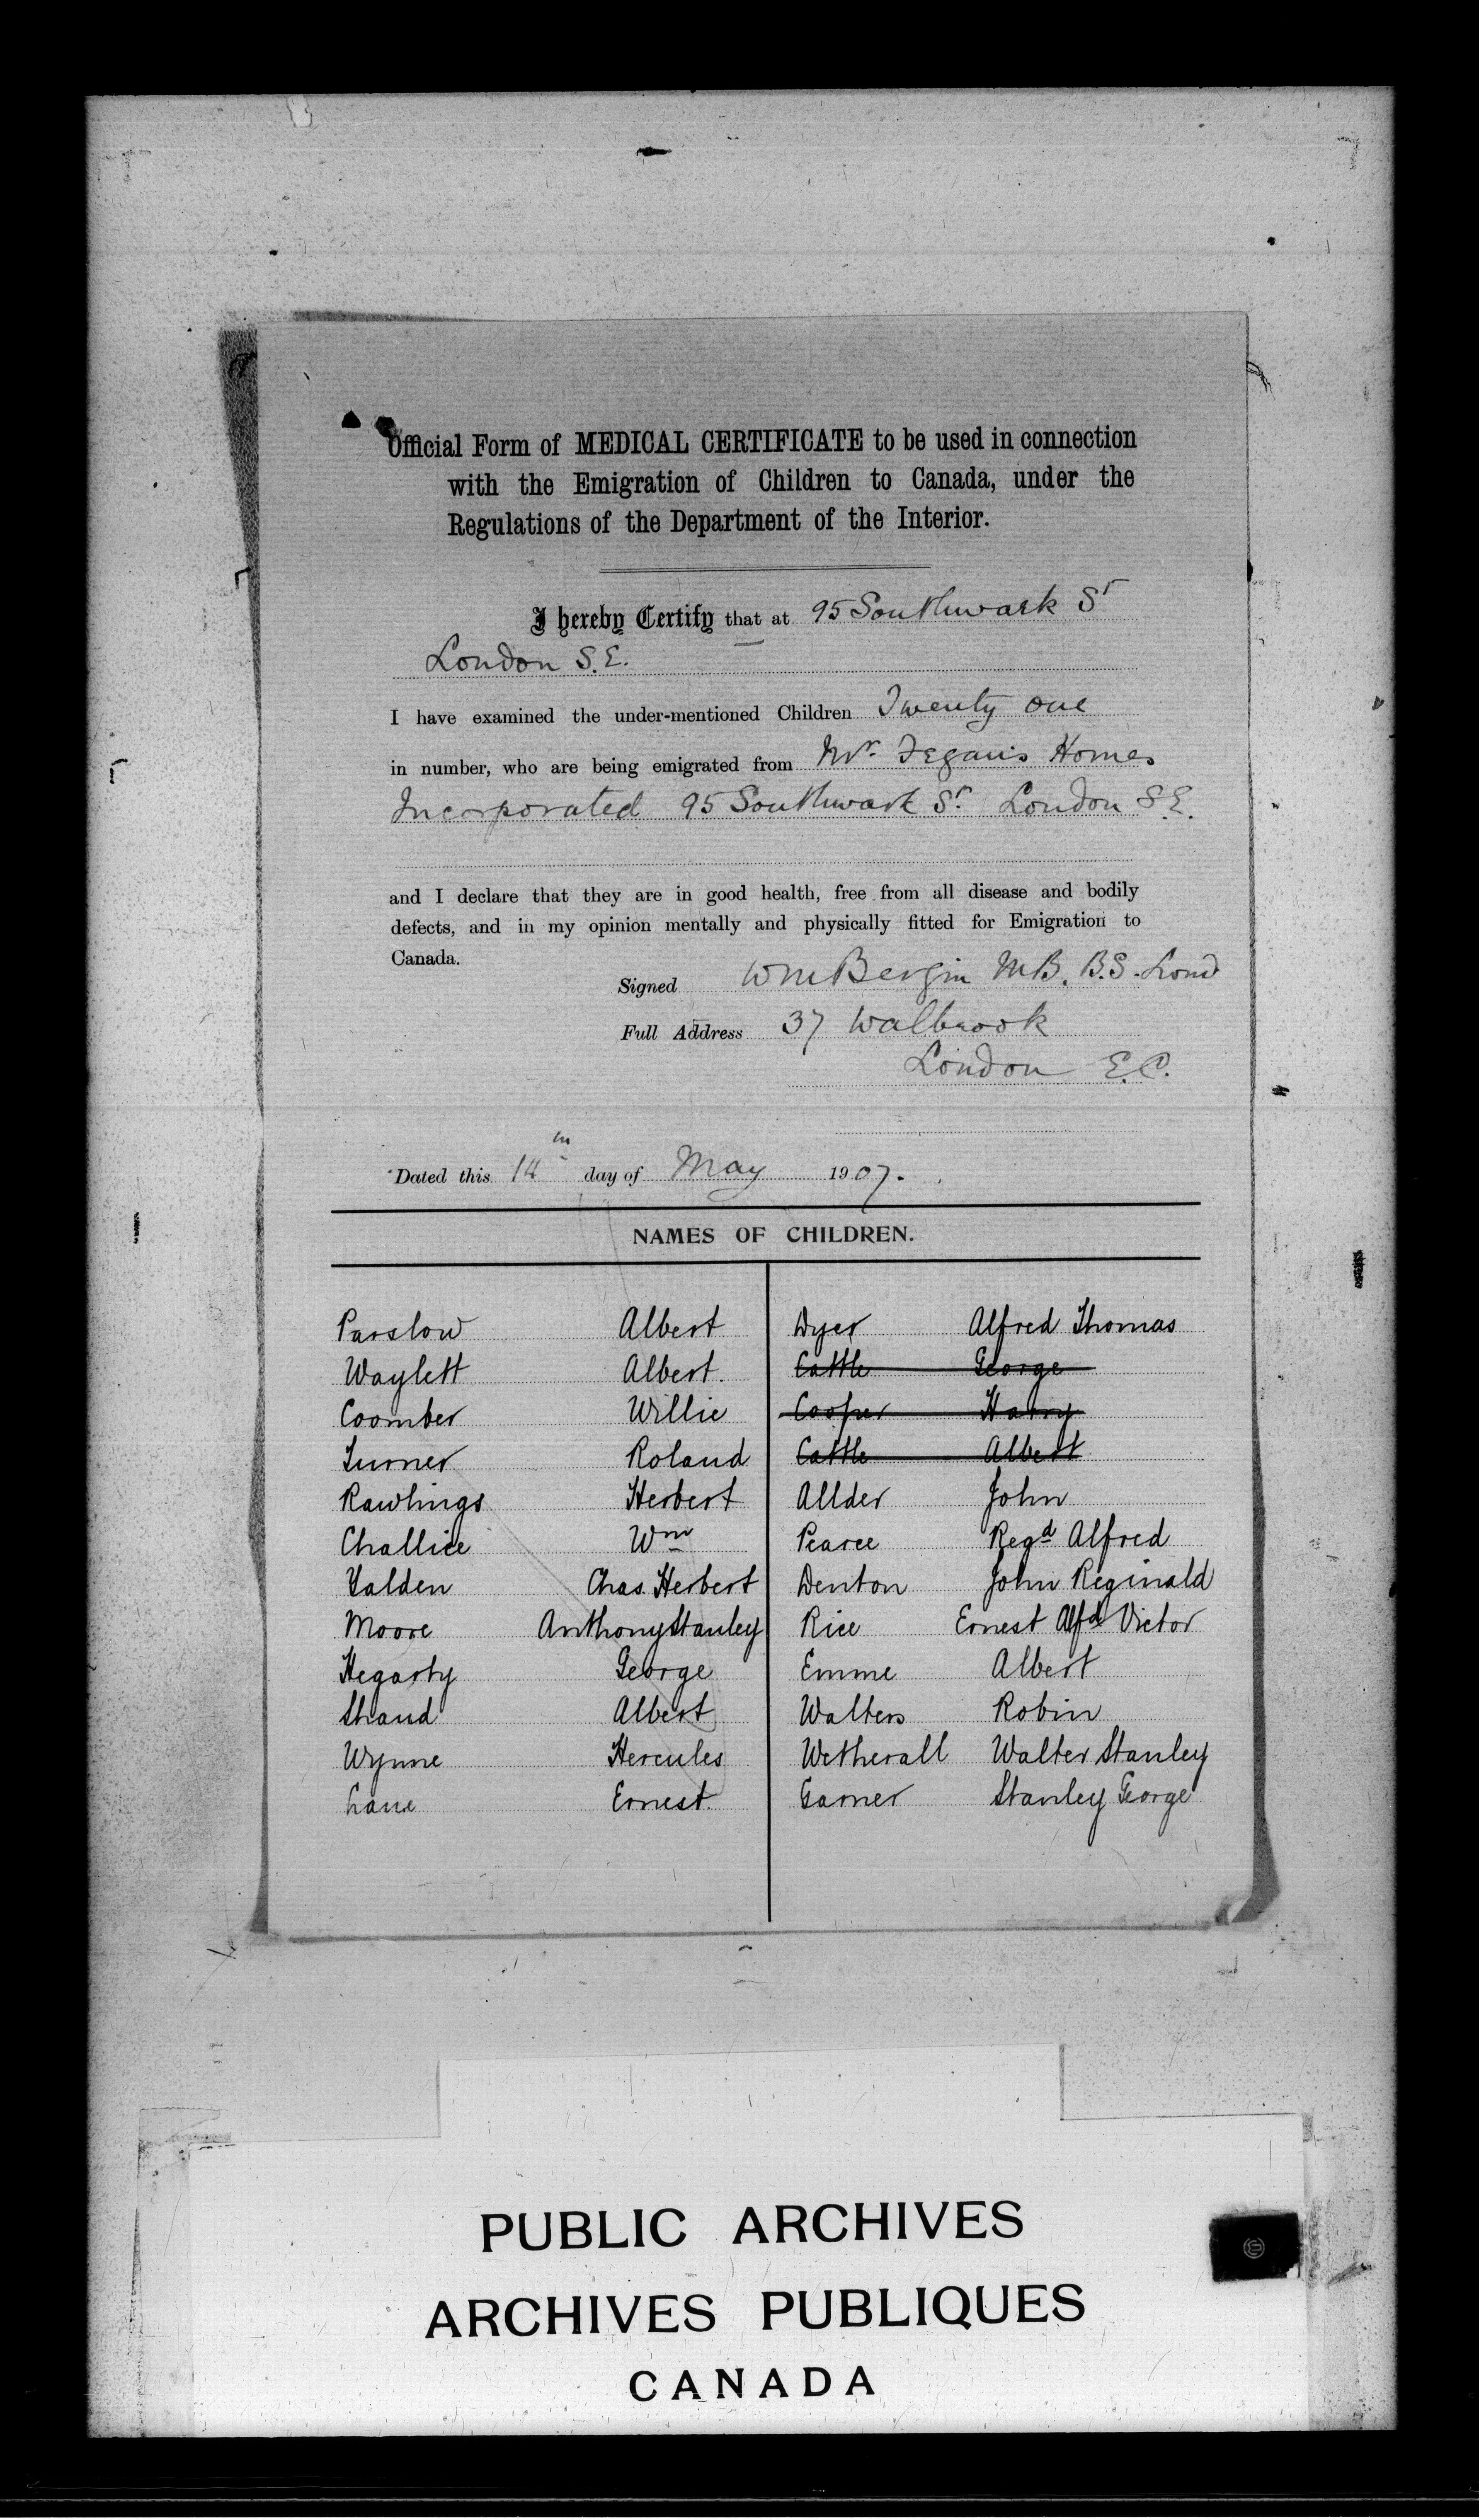 Official Form of MEDICAL CERTIFICATE to be used in connection
with the Emigration of Children to Canada, under the
Regulations of the Department of the Interior.
I hereby Certify that at 95 Southwark St
London S.E.
I have examined the under-mentioned Children Twenty one
in number, who are being emigrated from Mr. Fegan's Homes
Incorporated 95 Southwark St. London S.E.
and I declare that they are in good health, free from all disease and bodily
defects, and in my opinion mentally and physically fitted for Emigration to
Canada.
Signed Wm Bergin M.B. B.S. Lond
Full Address 37 Walbrook
London E.C.
Dated this 14th day of May 1907.
NAMES OF CHILDREN.
Parslow Albert
Waylett Albert.
Coomber Willie
Turner Roland
Rawlings Herbert
Challice Wm
Yalden Chas. Herbert
Moore Anthony Stanley
Hegarty George
Shand Albert
Wynne Hercules
Lane Ernest.
Dyer Alfred Thomas
Cattle George
Cooper Harry
Cattle Albert
Allder John
Pearce Regd Alfred
Denton John Reginald
Rice Ernest Alfd Victor
Emme Albert
Walters Robin
Wetherall Walter Stanley
Garner Stanley George
PUBLIC ARCHIVES
ARCHIVES PUBLIQUES
CANADA